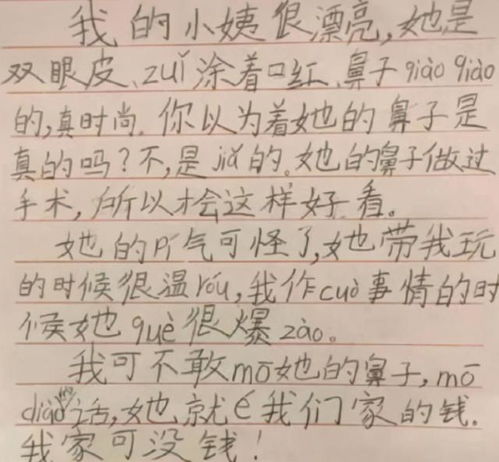 我的小姨很漂亮,她是
双眼皮、zuǐ涂着口红、鼻子qiào qiào
的,真时尚.你以为着她的鼻子是
真的吗?不,是jiǎ的。她的鼻子做过
手术,所以才会这样好看。
她的pí气可怪了,她带我玩
的时候很温róu,我作cuò事情的时
候她què很爆zào。
我可不敢mō她的鼻子,mō
diào话,她就é我们家的钱.
我家可没钱!